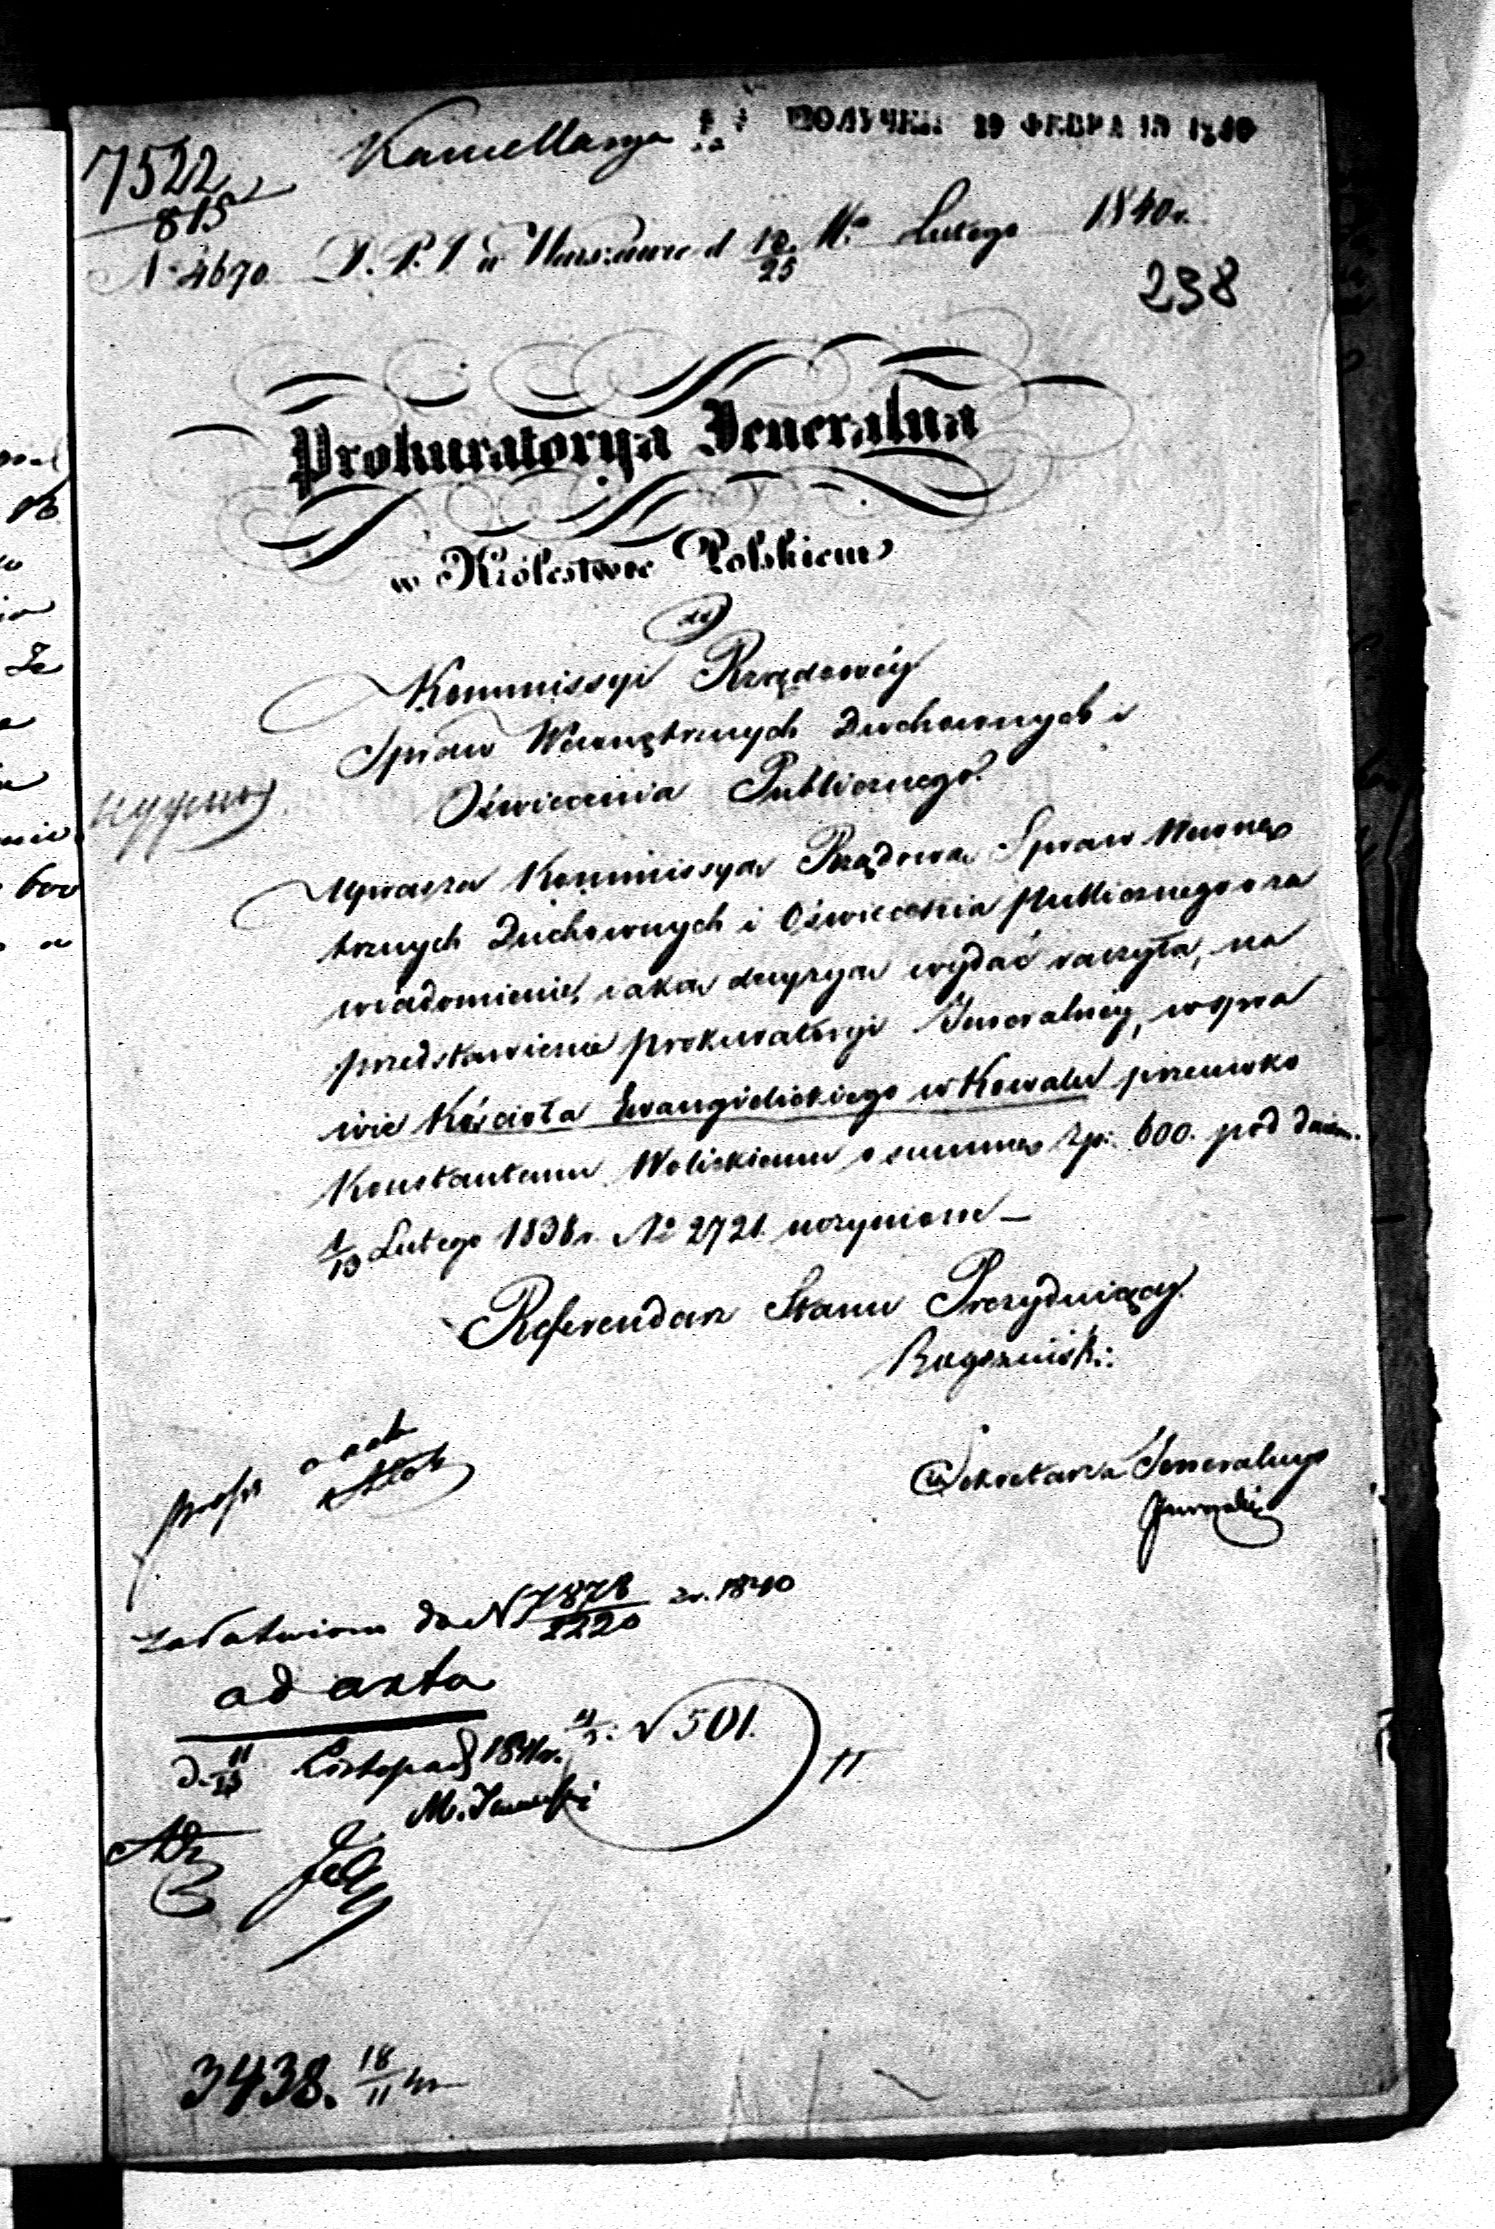 7522
815
Kancellarya
ПОЛУЧЕН 29 ФЕВРАЛЯ 1840
№ 4670. D. P. J w Warszawie d 13/25 Mca Lutego 1840 r.
238
Prokuratorya Jeneralna
w Królestwie Polskiem
do
Kommissyi Rządowéy
Spraw Wewnętrznych Duchownych i
Oświecenia Publicznego.
Uprasza Kommissya Rządowa Spraw Wewnę
trznych Duchownych i Oświecenia Publicznego o za
wiadomienie, iaką decyzyą wydać raczyła, na
przedstawienie prokuratoryi Jeneralnéy, w spra
wie Kościoła Ewangielickiego w Kowalu przeciwko
Konstantemu Wolickiemu o summę Zp: 600. pod dniem
1/13 Lutego 1838 r. № 2721. uczynione —
Referendarz Stanu Prezyduiący
Sekretarza Jeneralnego
załatwiono do № 7878/2220 z r. 1840
ad acta
d. 11/23 Listopada 184
№ 501.
3438. 18/11